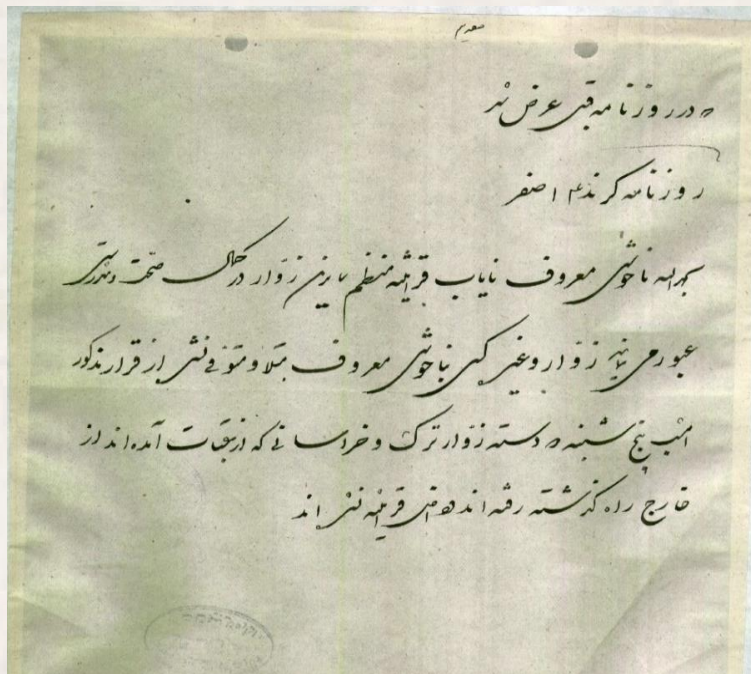 در روزنامه قبل عرض شد
روزنامه کرند ۱۴ صفر
بحمدالله ناخوشی معروف نایاب قرانتینه منتظم عابرین زوار در کمال صحت و تندرستی
عبور می نمایند زوار و غیره کسی بناخوشی معروف مبتلا و متوفی نشده از قرار مذکور
امشب پنج شنبه دو دسته زوار ترک و خراسانی که از عتبات آمده اند از
خارج راه گذشته رفته اند داخل قرانتینه نشده اند